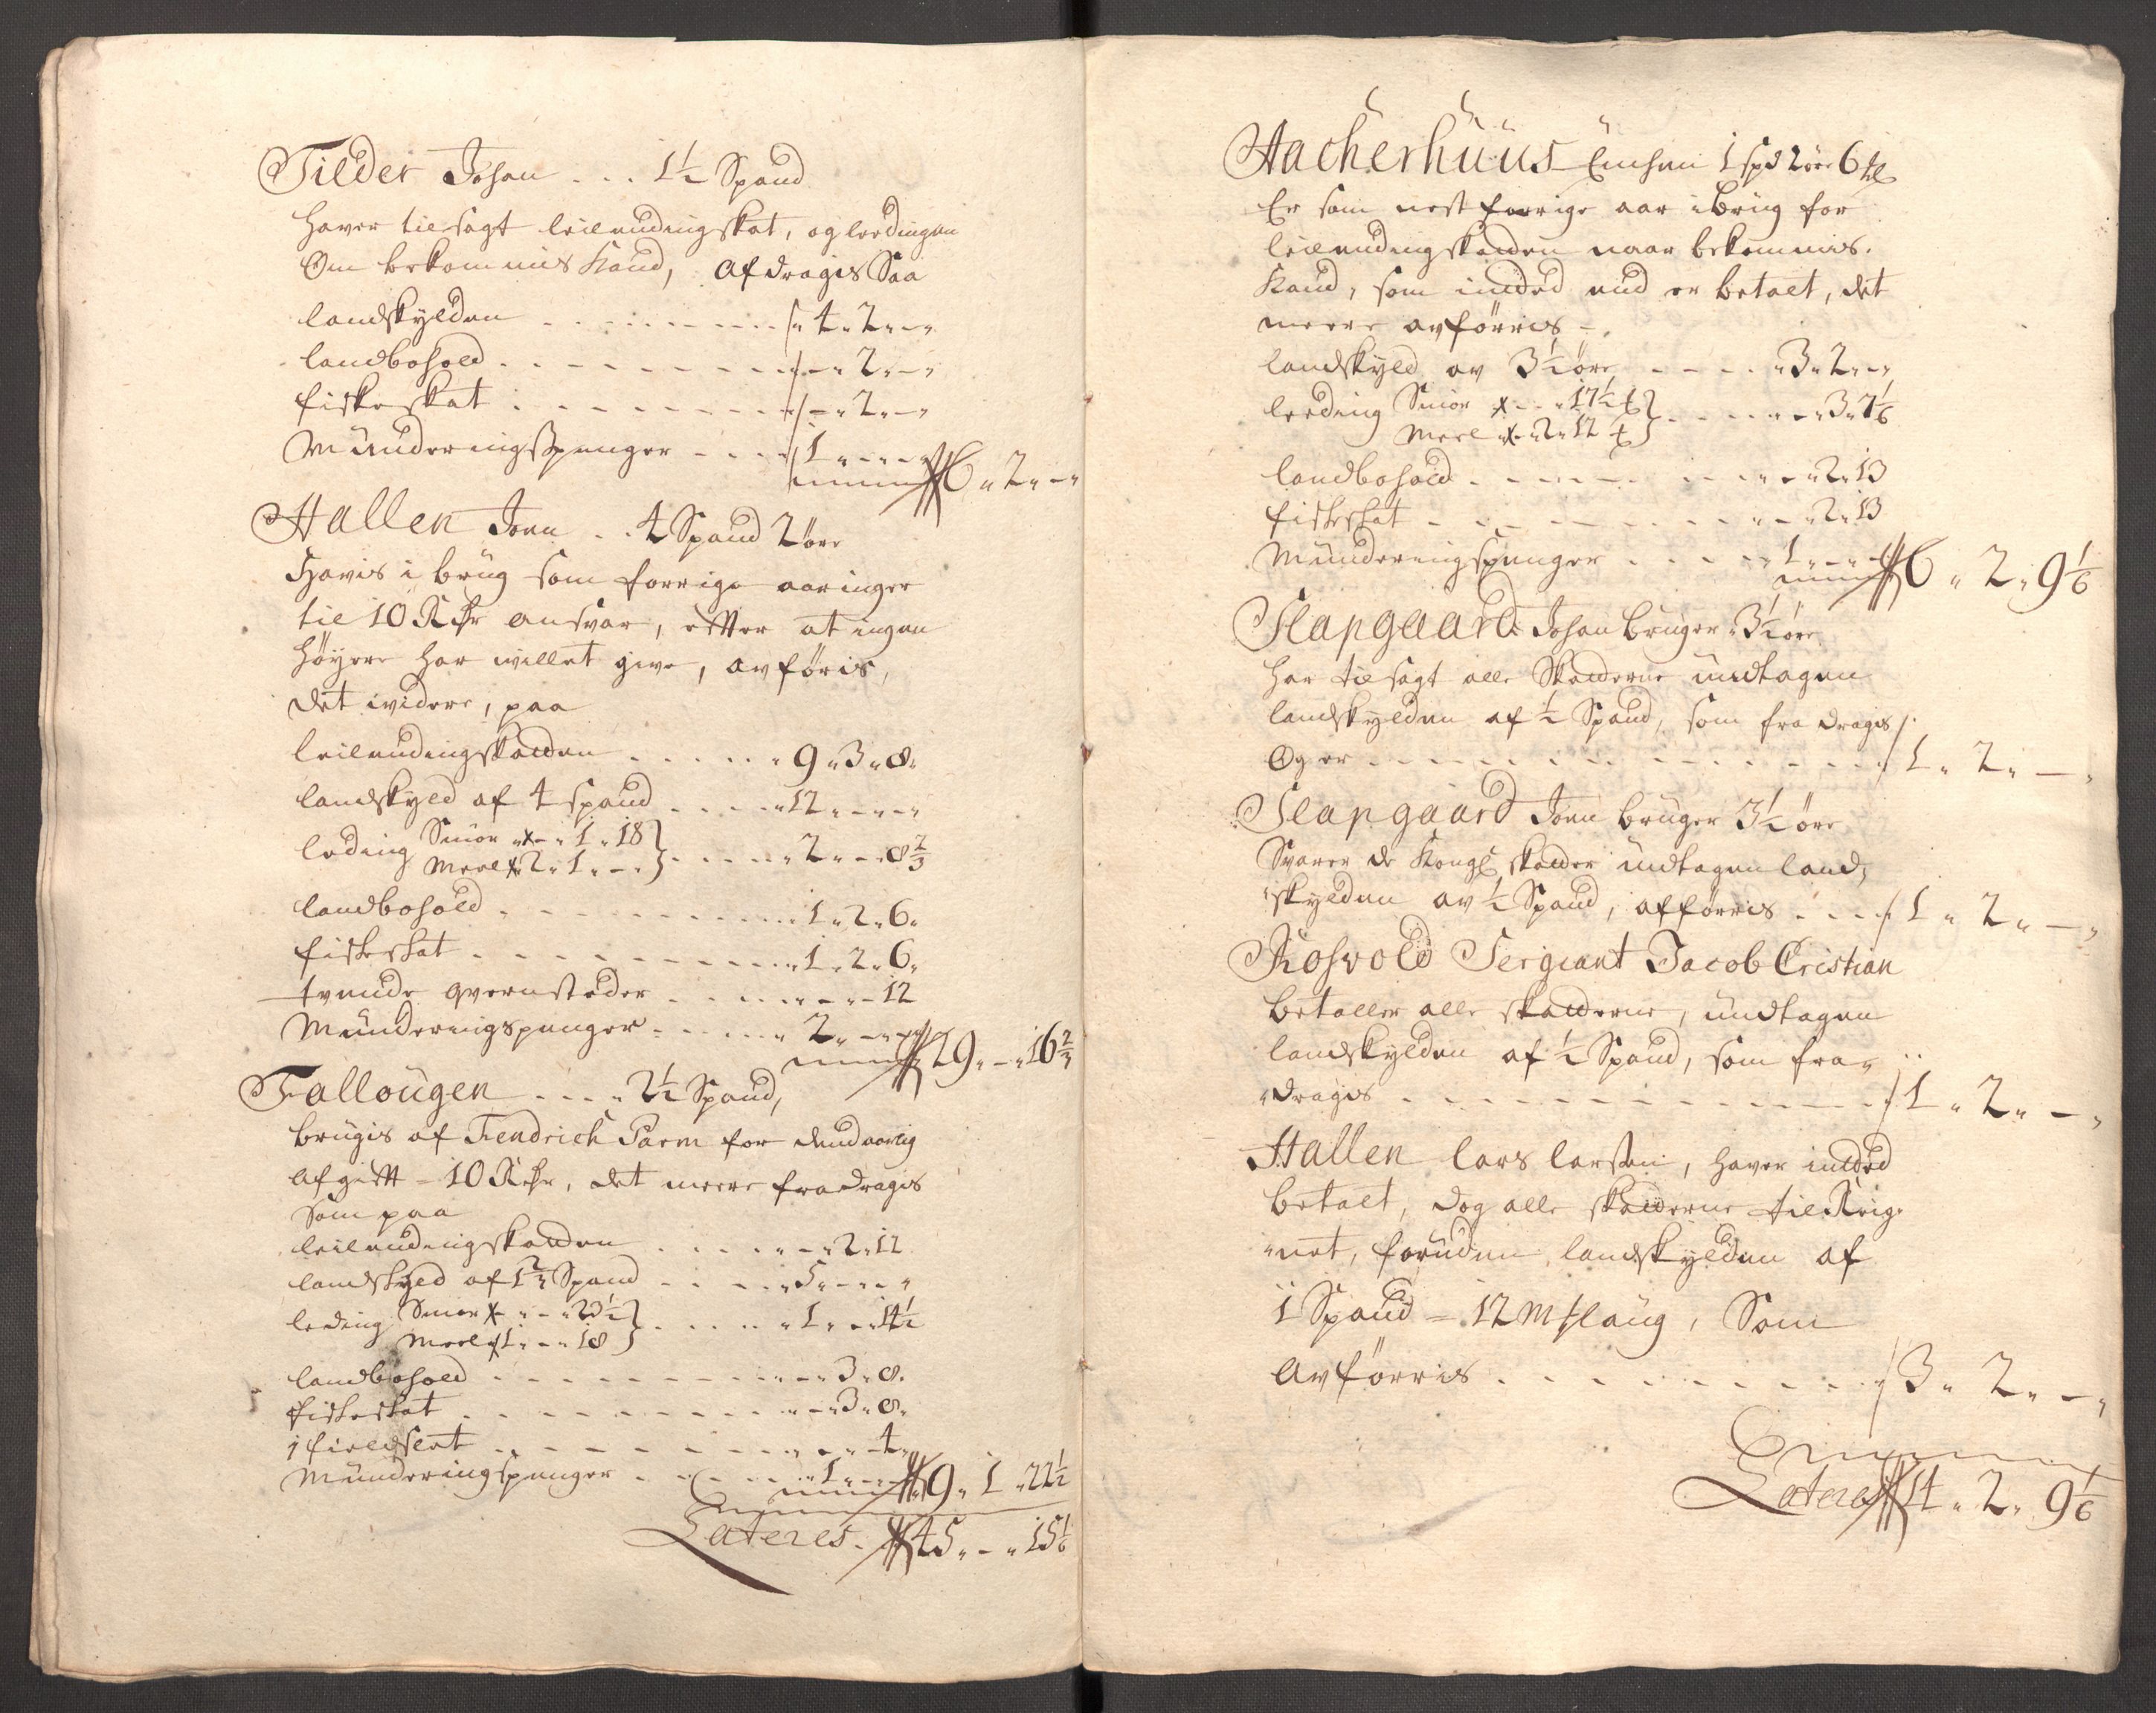 Tilder Johan . . . 1½ Spand
haver tilsagt leilendingskat, og leedingen
Om bekommis Kand, Afdragis Saa
landskylden . . . 4 " 2 " - "
landbohold . . . - " 2 " - "
fiskeskat . . . - " 2 " - "
Munderingspenger . . . 1 " - " - "
6 " 2 " - "
Hallen Joen . . 4 Spand 2 öre
Havis i brug som forrige aar inger
til 10 Rdr ansvar, efter at ingen
höyere har villet give, avföris,
det videre, paa
leilendingskatten . . . 9 " 3 " 8 "
landskyld af 4 spand . . . 12 " - " - "
leding Smör " - " 1 " 18
Meel 2 " 1 " - " . . . 2 " - " 8⅔
landbohold . . . 1 " 2 " 6 "
fiskeskat . . . 1 " 2 " 6 "
tvende qvernsteder . . . " - " - 12
Munderingspenger . . . 2 " - " - "
29 " - " 16⅔
Fallougen . . . . 2½ Spand,
brugis af Fendrich Parm for dend aarlig
Afgifft = 10 Rdr, det meere fradragis
Som paa
leilendingskatten . . . " - " 2 " 12
landskyld af 1⅔ Spand . . . 5 " - " - "
leding Smör - " - " 23½
Meel 1 " - " 18 . . . 1 " - " 14½
landbohold . . . - " 3 " 8 "
fiskeskat . . . - " 3 " 8 "
1 field sent . . . - " - 4 "
Munderingspenger . . . 1 " - " - "
9 " 1 " 22½
Lateres . 45 " - " 15⅙
Aacherhuus Einhen 1 spd 2 öre 6
Er som nest forrige aar i brug for
leilendingskatten naar bekommis
Kand, som indtet end er betalt, det
meere avförris
landskyld av 3½ öre . . . 3 " 2 " - "
leeding Smör - " - " 17½
Meel - " 2 " 12 . . . - " 3 " 7⅙
landbohold . . . - " 2 " 13
fiskeskat . . . - " 2 " 13
Munderingspenger . . . 1 " - " - "
6 " 2 " 9⅙
Slapgaard Johan bruger 3½ öre
har tilsagt alle Skatterne undtagen
landskylden af ½ Spand, som fra dragis
Og er . . . 1 " 2 " - "
Slapgaard Joen bruger 3½ öre
Svarer de Kongl skatter undtagen land,
skylden av ½ Spand, afförris . . . 1 " 2 " - "
Rosvold Sergiant Jacob Cristian
betaller alle skatterne, undtagen
landskylden af ½ Spand, som fra
dragis . . . 1 " 2 " - "
Hallen lars larsen, haver indtet
betalt, dog alle skatterne til Krig
net, foruden landskylden af
1 Spand = 12 Mslaug, Som
Avförris . . . 3 " 2 " - "
Lateres 14 " 2 " 9⅙